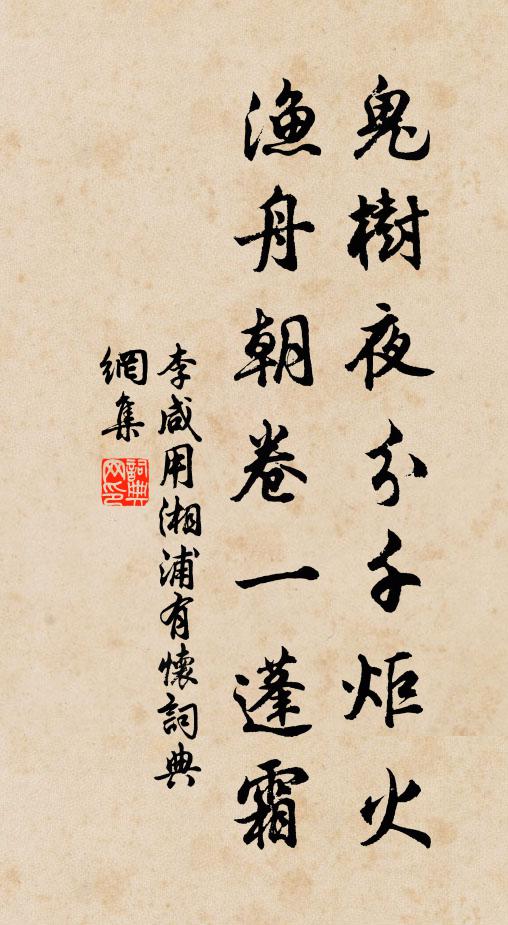 鬼樹夜分千炬火
漁舟朝卷一蓬霜
李咸用湘浦有懷詞典
網集
詞典網印